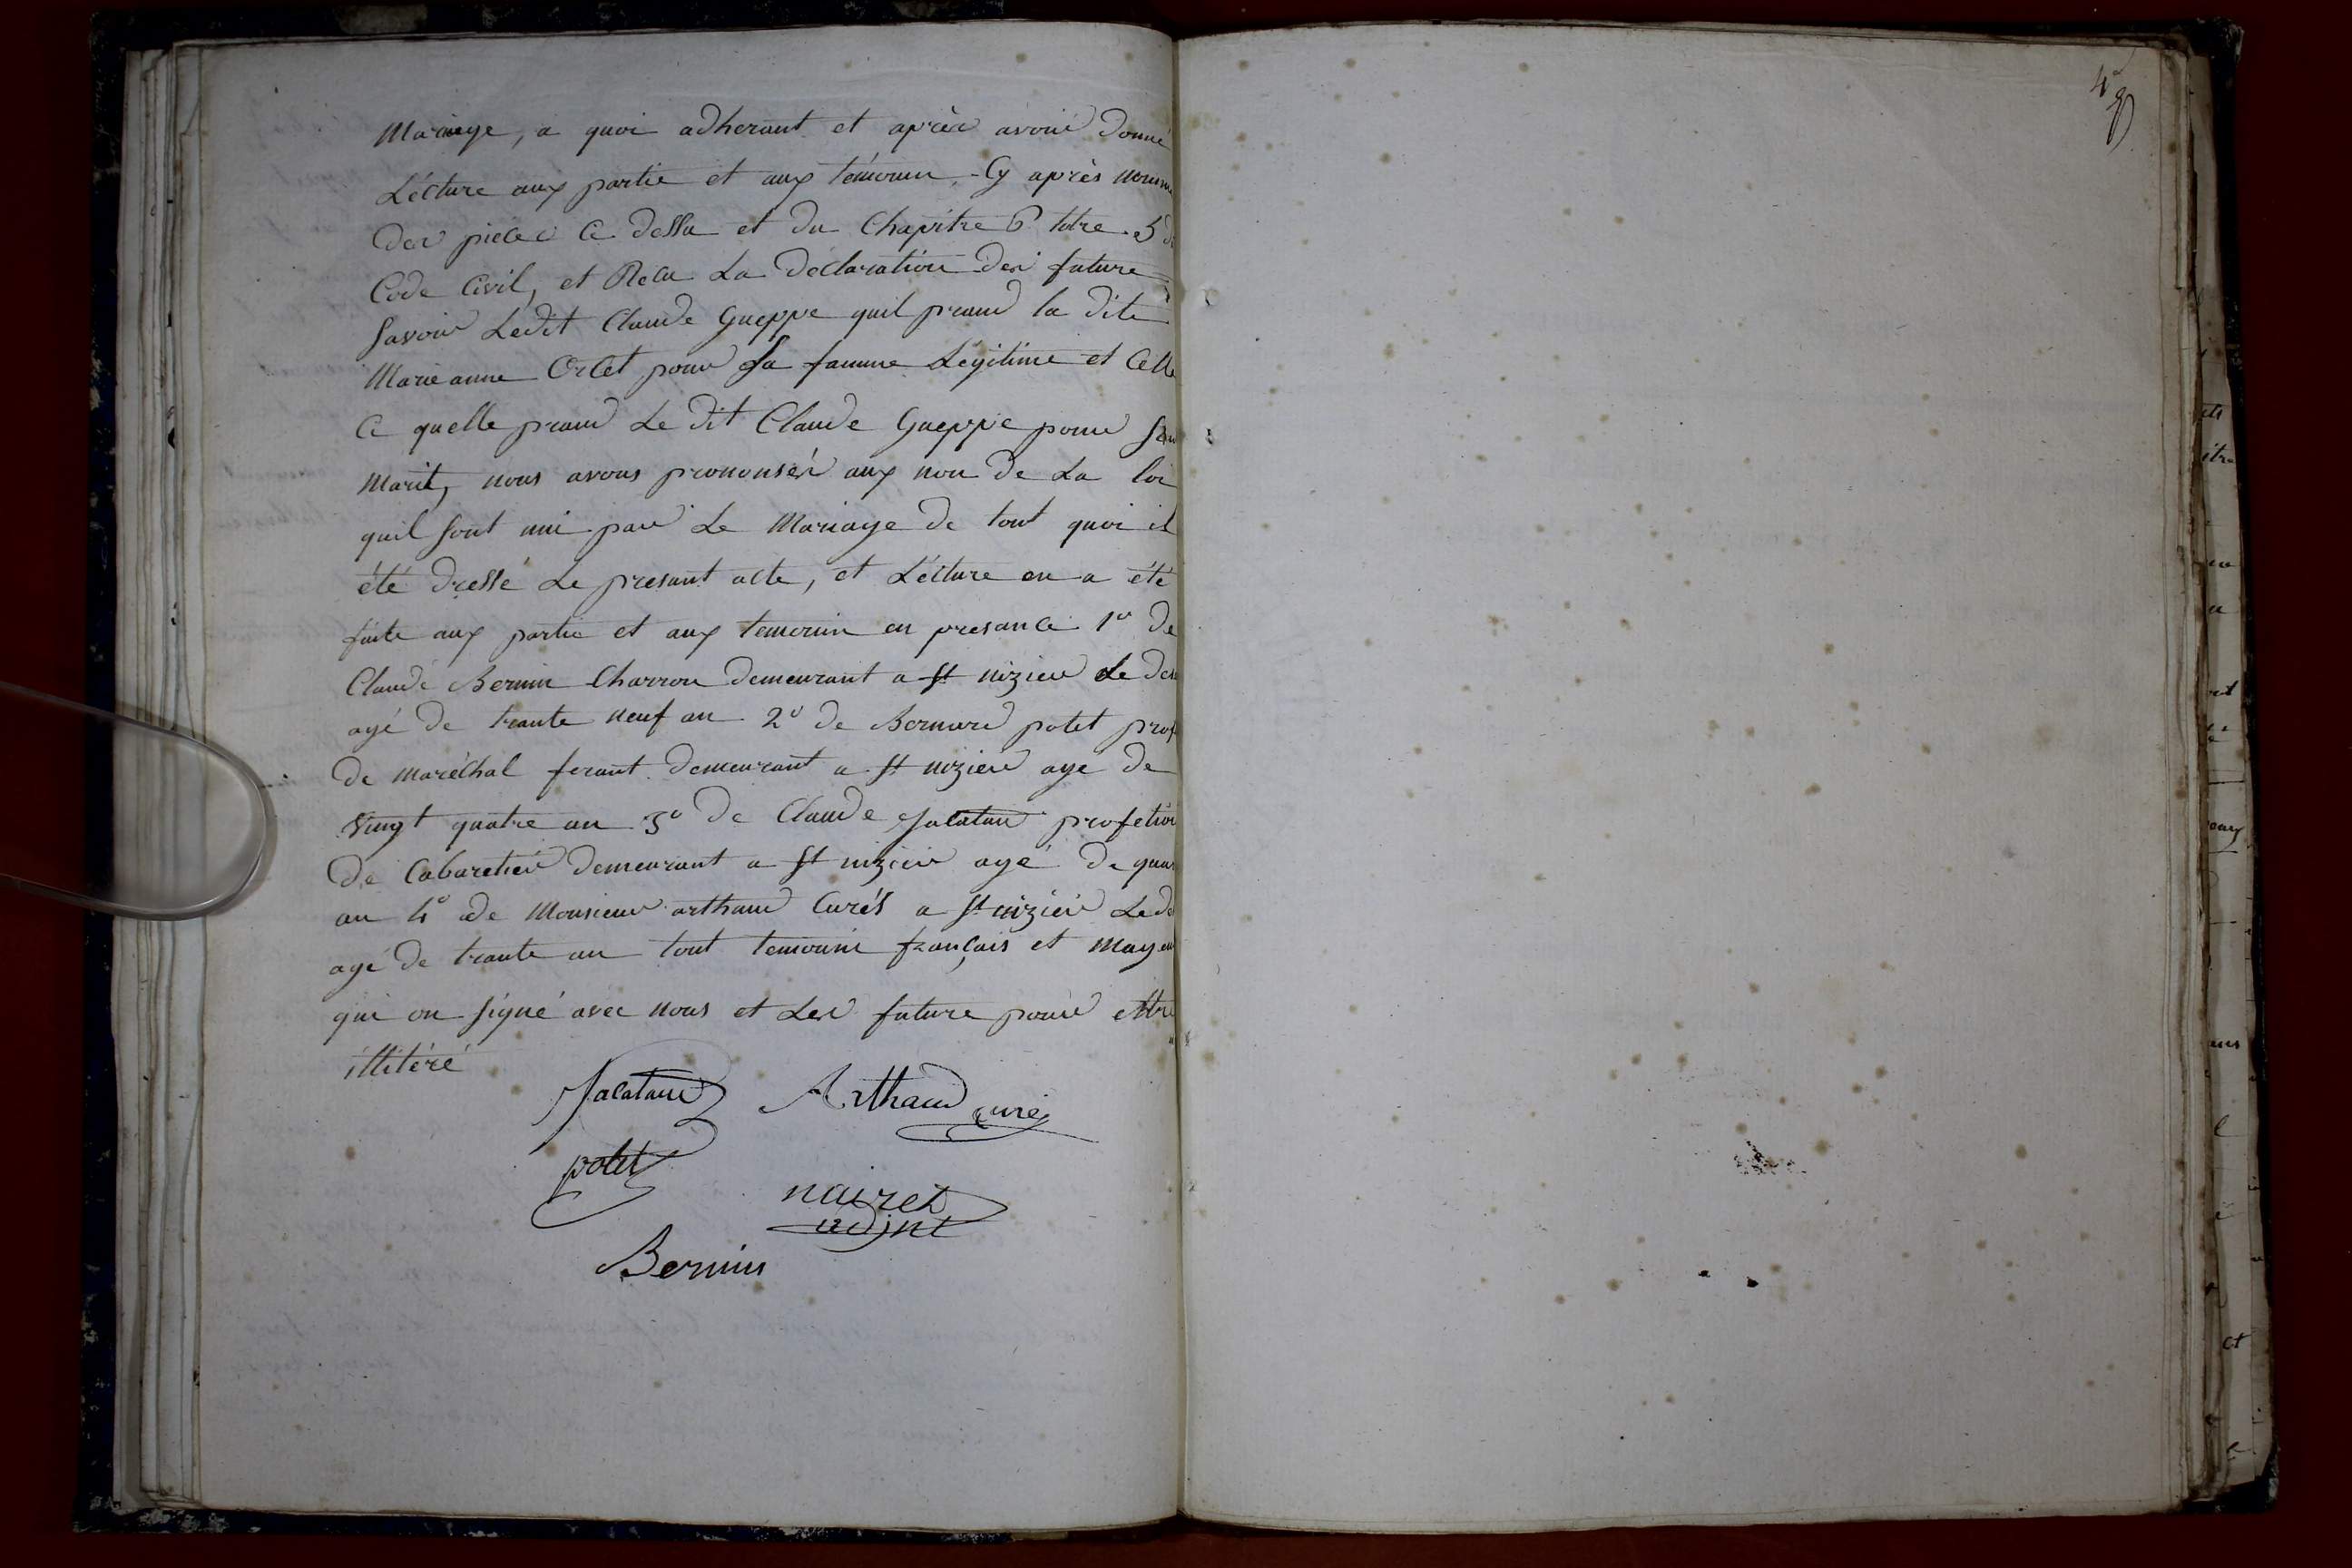 Mariage, a quoi adherant et après avoiré donné
Lécture aux partie et aux témouin, Cy après nomm
der pieces Ce dessu et du Chapitre 6 titre 5 d
Code Civil, et Recu La déclaration des future
Savoir Ledit Claude Gueppe quil prand la dite
Marieanne Orlet pour Sa famme Légitime et Celle
Ce quelle prand Le dit Claude Gueppe pour Son
Marit, nous avons prononsér aux non de La loi
quil sont uni par Le Mariage de tout quoi il
été dressé Le presant acte, et Lécture en a été
faite aux partie et aux temouin en presance 1º De
Claude Bernin Charron demeurant a St nizier Le des
agé de trante neuf an 2º de Bernard potet prof
de maréchal ferant demeurant a St nizier agé de
vingt quatre an 3º de Claude Jacatau profetion
De Cabaretier demeurant a St nizier agé de quar
an 4º de Monsieur arthaud Curés a St nizier Le de
agé de trante an tout temouin français et mayeu
qui on signé avec nous et Les future pour ettre
illitéré
Jacataud Arthaud curé
potet
nairet
adjnt
Bernin